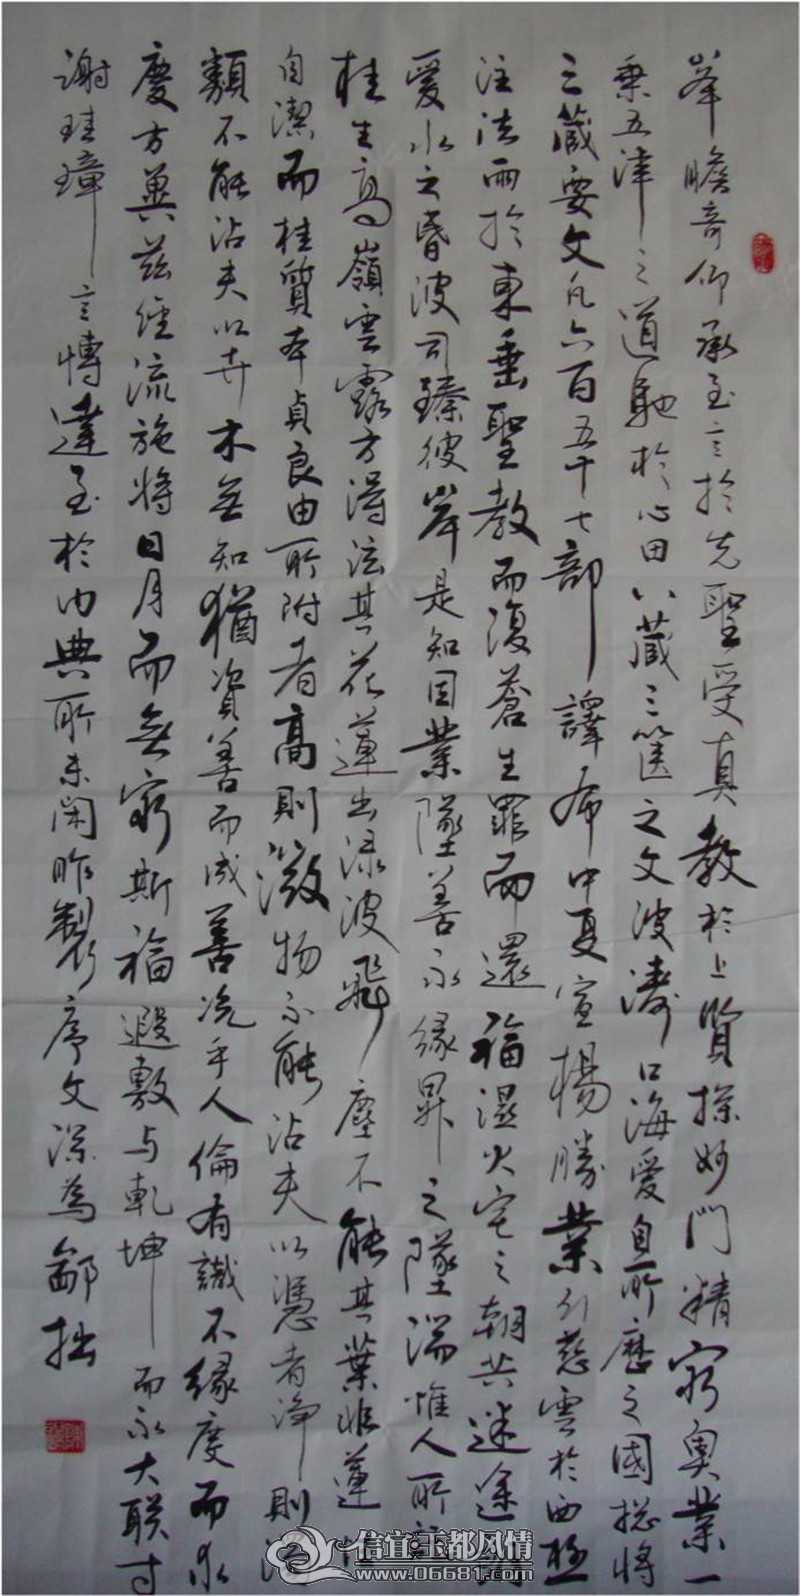 峯瞻奇仰承至言於先聖受真教於上賢探妙門精窮奧業一
乘五律之道馳於心田八藏三篋之文波濤口海爰自所歷之國揔將
三藏要文凡六百五十七部譯布中夏宣楊勝業引慈雲於西極
注法雨於東垂聖教而復蒼生罪而還福濕火宅之朝共迷途朗
愛水之昏波司臻彼岸是知因業墜善永緣昇之墜端惟人所
桂生高嶺雲露方得泫其花蓮出淥波飛塵不能其葉非蓮性
自潔而桂質本貞良由所附者高則微物不能沾夫以憑者淨則濁
類不能沾夫以卉木無知猶資善而成善况乎人倫有識不緣慶而求
慶方冀茲經流施將日月而無窮斯福遐敷与乾坤而永大朕才
謝珪璋言慱達至於內典所未閑昨製序文深為鄙拙
信宜玉都风情
www.06681.com